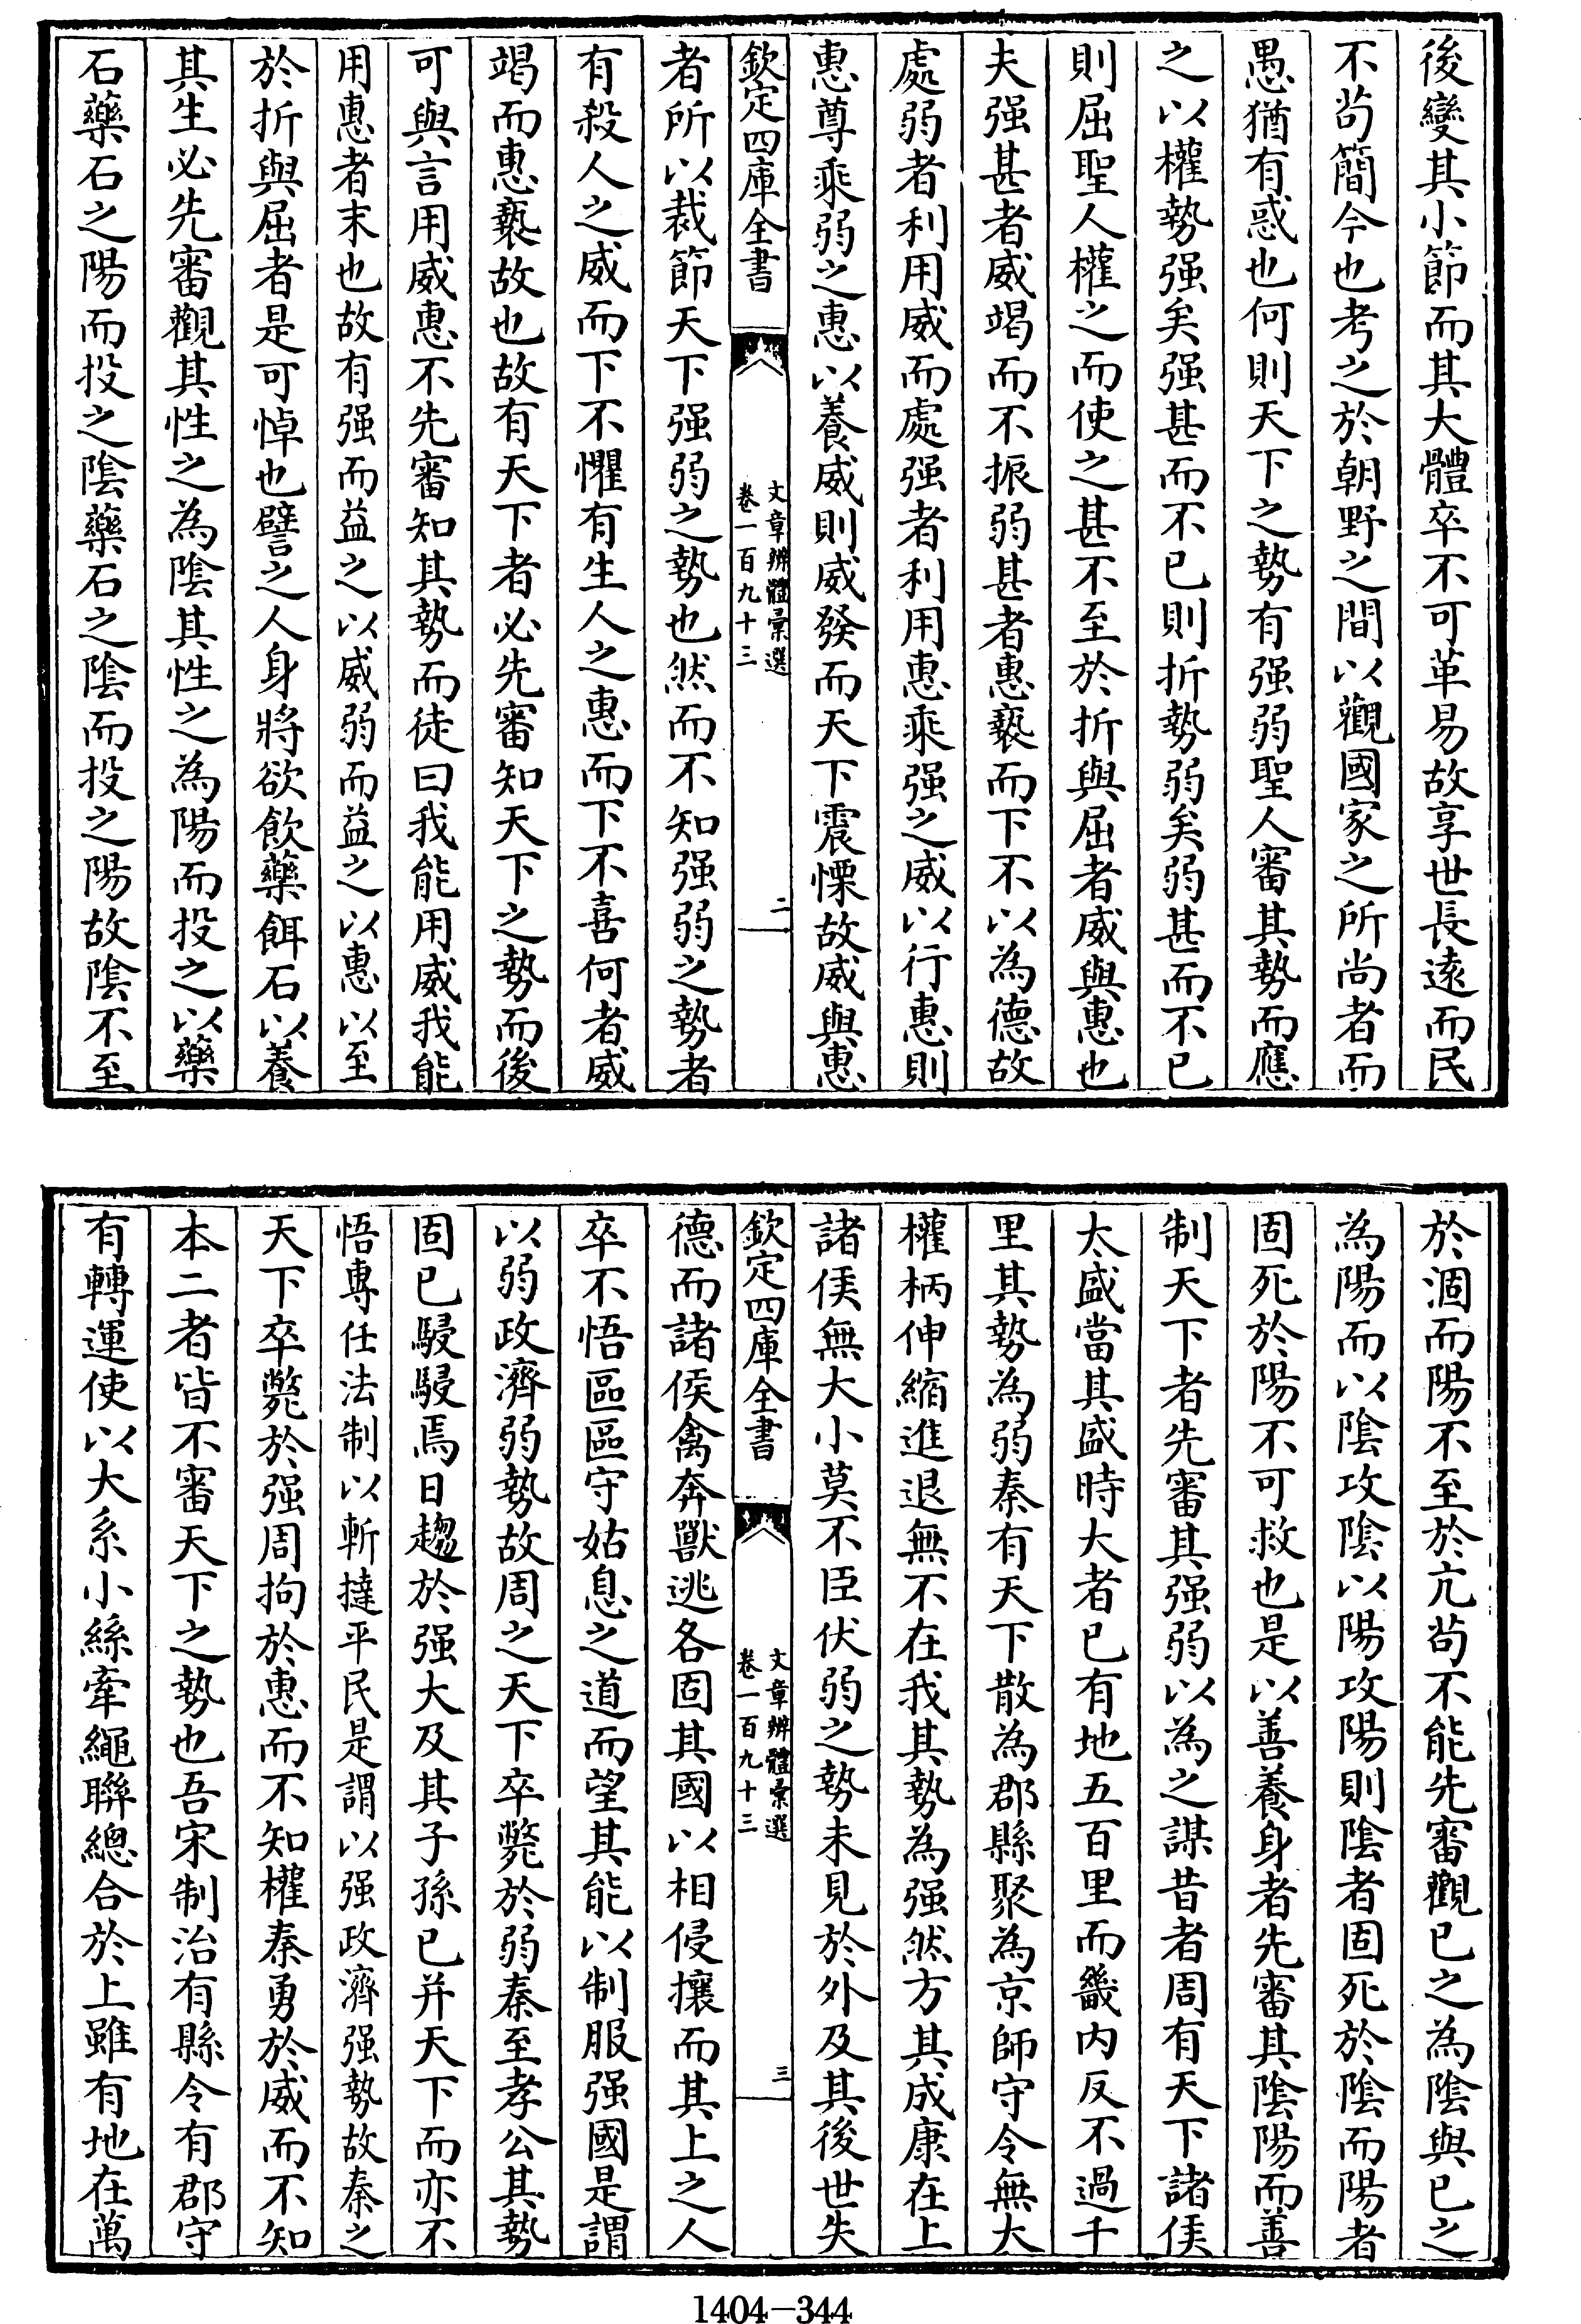 後變其小節而其大體卒不可革易故享世長遠而民
不茍簡今也考之於朝野之間以觀國家之所尚者而
愚猶有惑也何則天下之勢有强弱聖人審其勢而應
之以權勢强矣强甚而不已則折勢弱矣弱甚而不已
則屈聖人權之而使之甚不至於折與屈者威與惠也
夫强甚者威竭而不振弱甚者惠䙝而下不以為德故
處弱者利用威而處强者利用惠乘强之威以行惠則
惠尊乘弱之惠以養威則威發而天下震慄故威與惠
欽定四庫全書
文章辨體彚選
卷一百九十三
二
者所以裁節天下强弱之勢也然而不知强弱之勢者
有殺人之威而下不懼有生人之惠而下不喜何者威
竭而惠䙝故也故有天下者必先審知天下之勢而後
可與言用威惠不先審知其勢而徒曰我能用威我能
用惠者末也故有强而益之以威弱而益之以惠以至
於折與屈者是可悼也譬之人身將欲飲藥餌石以養
其生必先審觀其性之為陰其性之為陽而投之以藥
石藥石之陽而投之陰藥石之陰而投之陽故陰不至
於涸而陽不至於亢茍不能先審觀已之為陰與已之
為陽而以陰攻陰以陽攻陽則陰者固死於陰而陽者
固死於陽不可救也是以善養身者先審其陰陽而善
制天下者先審其强弱以為之謀昔者周有天下諸侯
太盛當其盛時大者已有地五百里而畿内反不過千
里其勢為弱秦有天下散為郡縣聚為京師守令無大
權柄伸縮進退無不在我其勢為强然方其成康在上
諸侯無大小莫不臣伏弱之勢未見於外及其後世失
欽定四庫全書
文章辨體彚選
卷一百九十三
三
德而諸侯禽奔獸逃各固其國以相侵攘而其上之人
卒不悟區區守姑息之道而望其能以制服强國是謂
以弱政濟弱勢故周之天下卒斃於弱秦至孝公其勢
固已駸駸焉日趨於强大及其子孫已并天下而亦不
悟專任法制以斬撻平民是謂以强政濟强勢故秦之
天下卒斃於强周拘於惠而不知權秦勇於威而不知
本二者皆不審天下之勢也吾宋制治有縣令有郡守
有轉運使以大系小絲牽繩聯總合於上雖有地在萬
1404-344